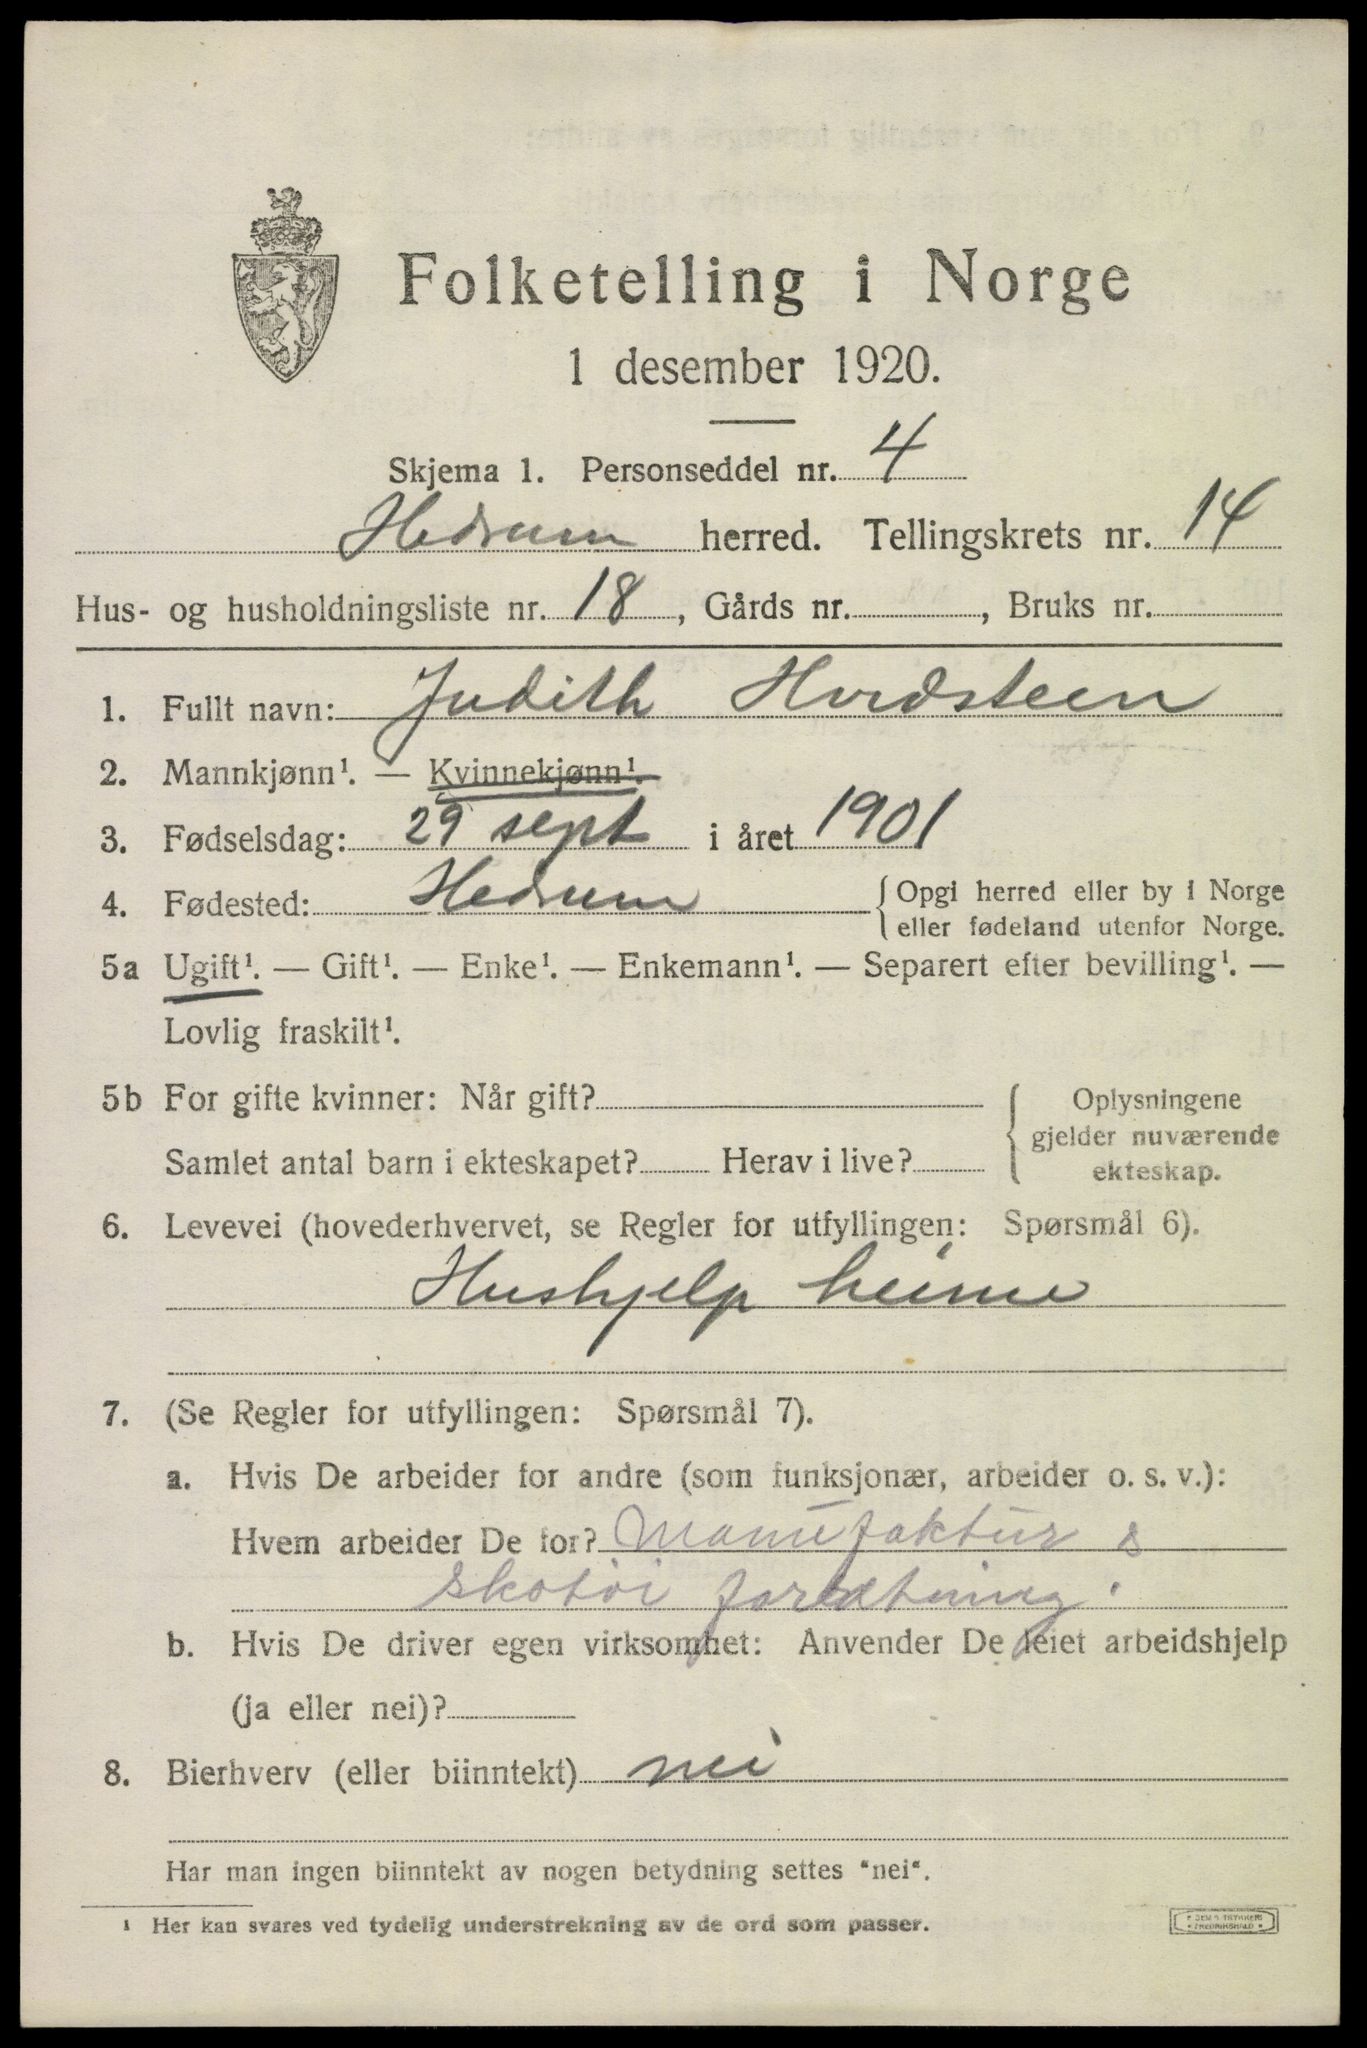 Folketelling i Norge
1 desember 1920.
Skjema 1. Personseddel nr. 4
Hedrum herred. Tellingskrets nr. 14
Hus- og husholdningsliste nr. 18, Gårds nr. , Bruks nr.
1. Fullt navn: Judith Hvidsteen
2. Mannkjønn¹. — Kvinnekjønn¹.
3. Fødselsdag: 29 sept i året 1901
4. Fødested: Hedrum { Opgi herred eller by i Norge
eller fødeland utenfor Norge.
5a Ugift¹. — Gift¹. — Enke¹. — Enkemann¹. — Separert efter bevilling¹. —
Lovlig fraskilt¹.
5b For gifte kvinner: Når gift? { Oplysningene
gjelder nuværende
Samlet antal barn i ekteskapet? Herav i live?
ekteskap.
6. Levevei (hovederhvervet, se Regler for utfyllingen: Spørsmål 6).
Hushjelp heime
7. (Se Regler for utfyllingen: Spørsmål 7).
a. Hvis De arbeider for andre (som funksjonær, arbeider o. s. v.):
Hvem arbeider De for? Manufaktur &
skotøi forretning.
b. Hvis De driver egen virksomhet: Anvender De leiet arbeidshjelp
(ja eller nei)?
8. Bierhverv (eller biinntekt) nei
Har man ingen biinntekt av nogen betydning settes "nei".
¹ Her kan svares ved tydelig understrekning av de ord som passer.